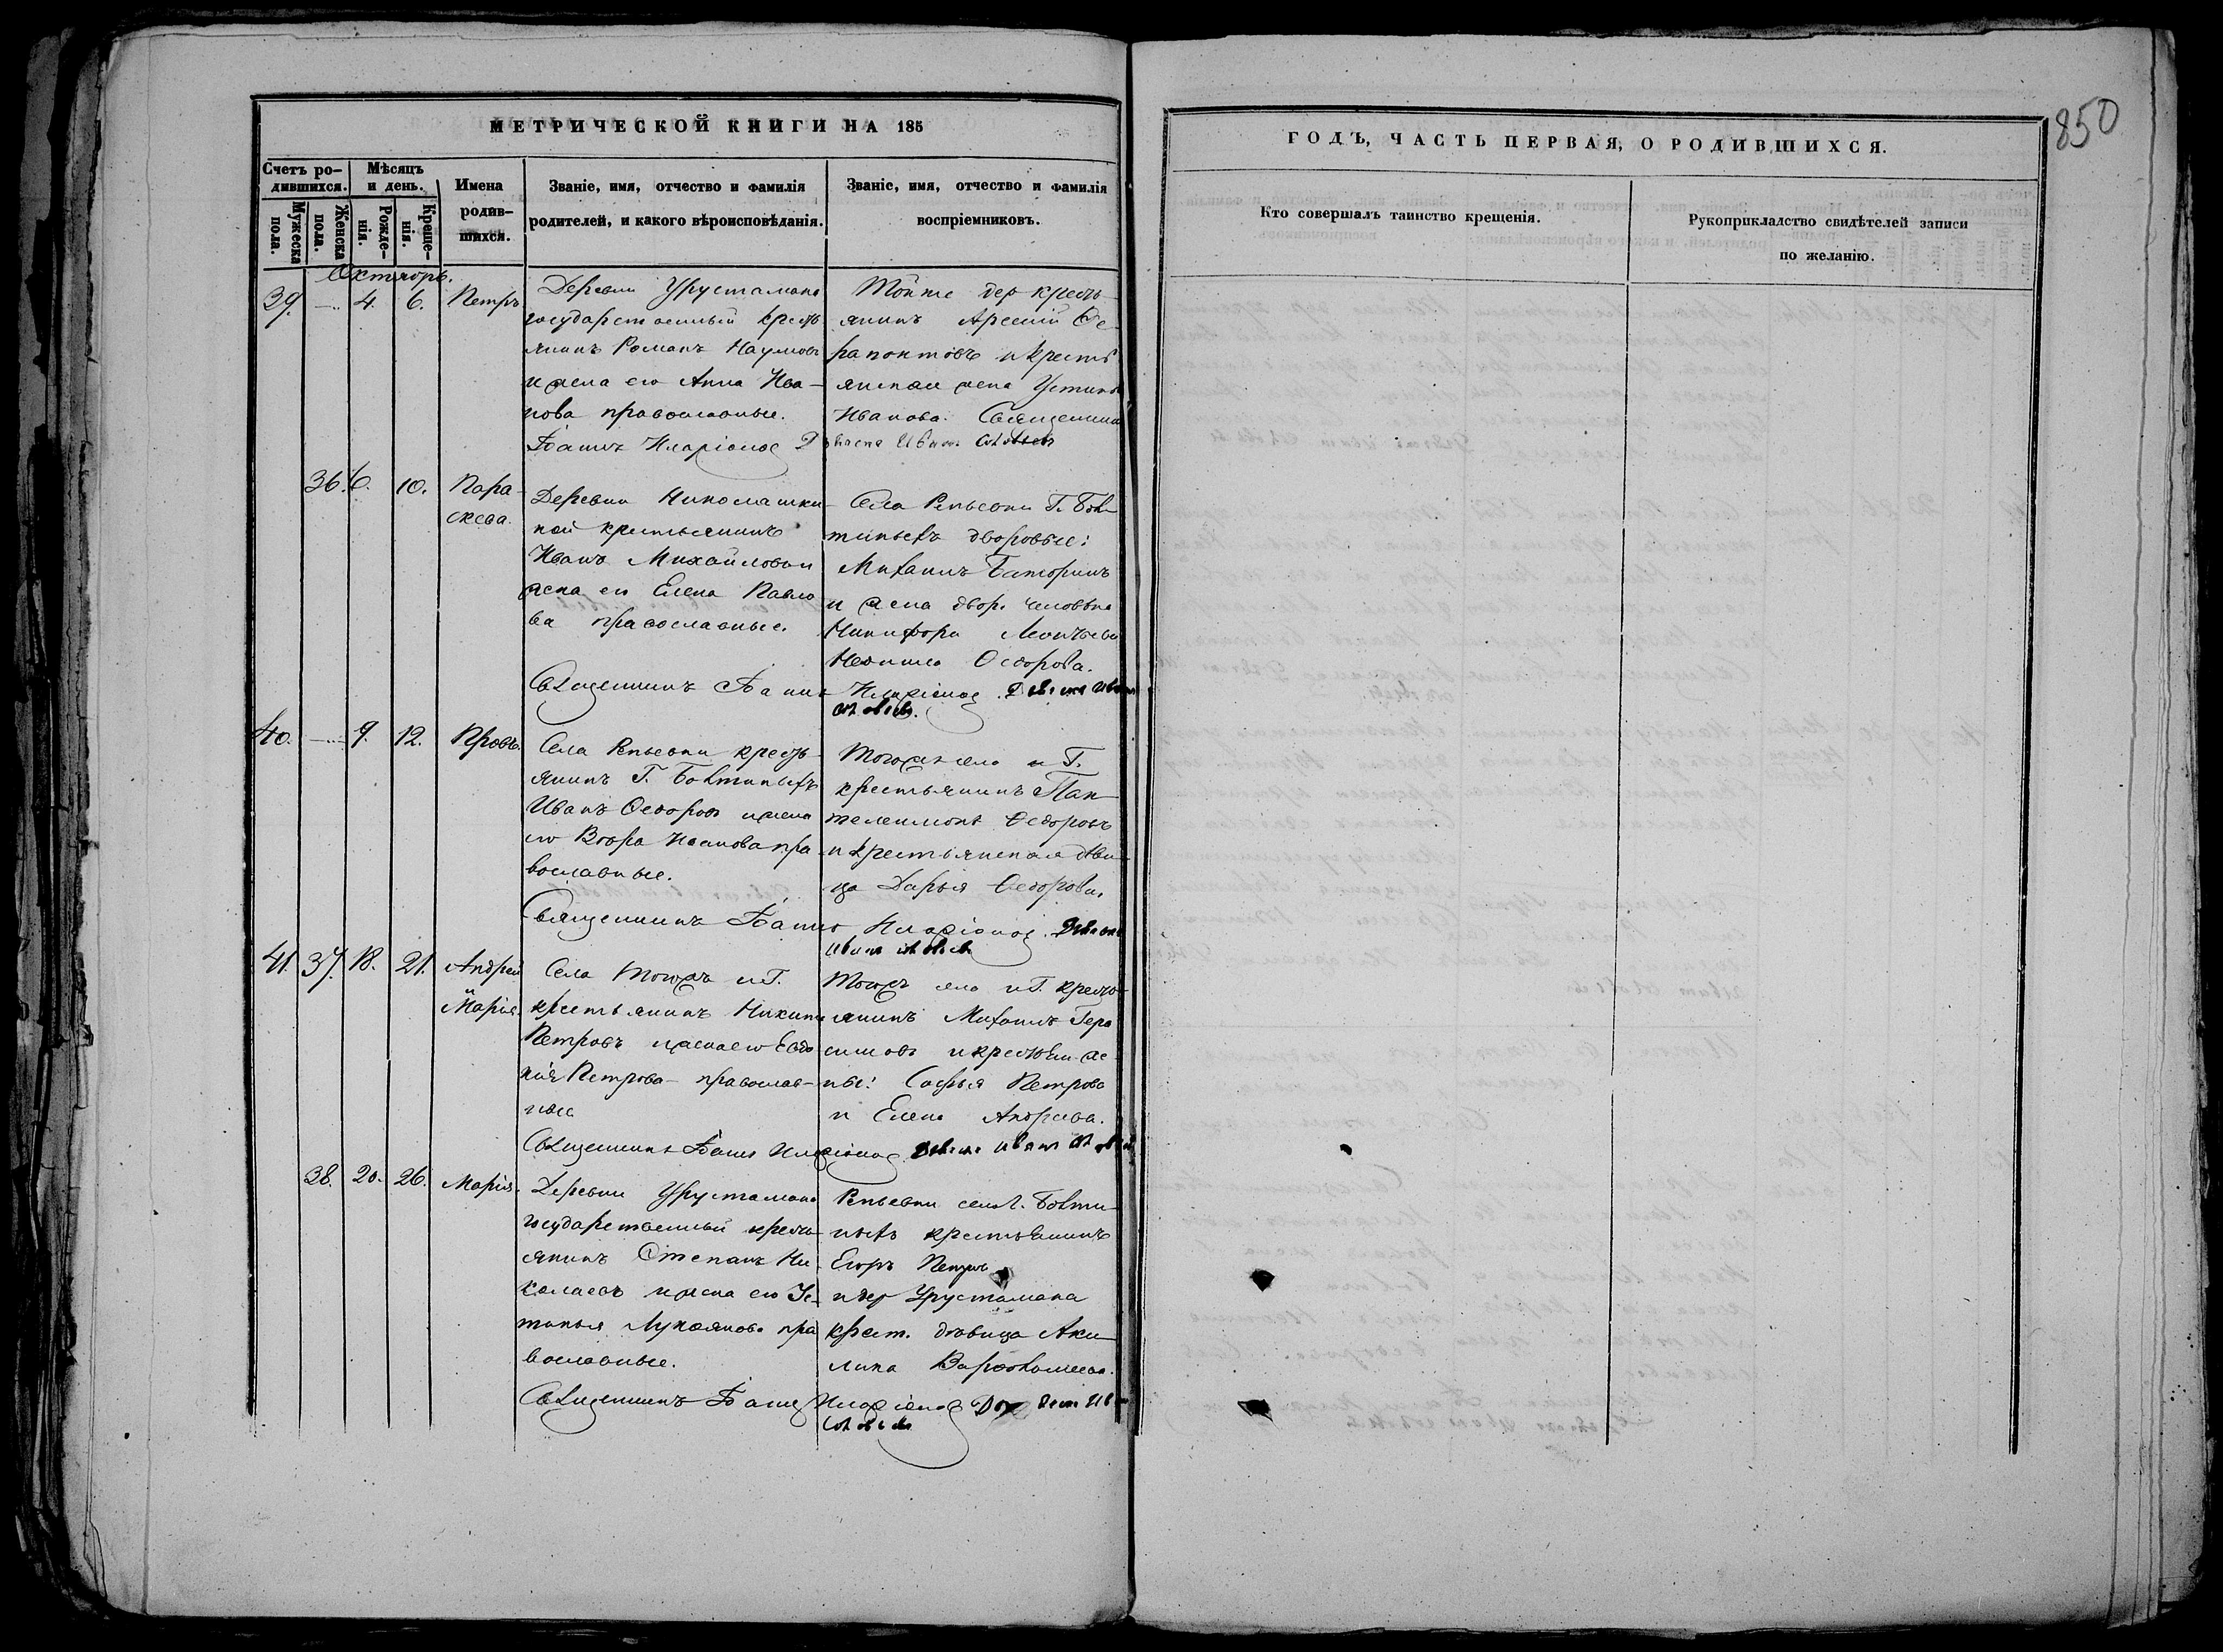 МЕТРИЧЕСКОЙ КНИГИ НА 185
Счетъ ро-
дившихся.
Мужеска пола.
Женска пола.
Мѣсяцъ
и день.
Рожде-
нія.
Креще-
нія.
Имена
родив-
шихся.
Званіе, имя, отчество и фамилія
родителей, и какого вѣроисповѣданія.
Званіе, имя, отчество и фамилія
воспріемниковъ.
Октябрь.
39. 4. 6. Петръ
Деревни Урустамака
государственный кресть
янинъ Романъ Наумовъ
и жена его Анна Ива-
нова православные.
Тойже дер кресть-
янинъ Арсеній Фе-
рапонтовъ и кресть
янская жена Устинья
Иванова. Священник
Иларіонов
36. 6. 10. Пара-
скева.
Деревни Николашки-
ной крестьянинъ
Иванъ Михайловъ и
жена его Елена Павло
ва православные.
Села Репьевки Г.
дворовые:
Михаилъ
и жена двор. человѣка
Никифора Леонтьева
Федорова.
Священникъ Иларіонов Иванъ
40. 9. 12. Провъ.
Села Репьевки кресть-
янинъ Г.
Иванъ Федоровъ и жена
его Вѣра Иванова пра
вославные.
Тогоже села и Г.
крестьянинъ Пан-
телеимонъ Федоровъ
и крестьянская дѣви-
ца Дарья Федорова.
Священникъ Иларіонов
Иванъ
41. 37. 18. 21. Андрей
и
Марія.
Села тогожъ и Г.
крестьянинъ Никита
Петровъ и жена его Евдо
кія Петрова православ-
ные
Тогожъ села и Г. кресть-
янинъ Михаилъ Гера
симовъ и крестьян. же-
ны: Софья Петрова
и Елена Андреева.
Священникъ Иларіонов Иванъ
38. 20. 26. Марія.
Деревни Урустамака
государственный кресть-
янинъ Степанъ Ни-
колаевъ и жена его Ус-
тинья Лукоянова пра
вославные.
Репьевки села Г.
крестьянинъ
Егоръ Петровъ
и дер Урустамака
крест. дѣвица Аку-
лина Варфоломеева.
Священникъ Иларіонов
ГОДЪ, ЧАСТЬ ПЕРВАЯ, О РОДИВШИХСЯ.
850
Кто совершалъ таинство крещенія.
Рукоприкладство свидѣтелей записи
по желанію.